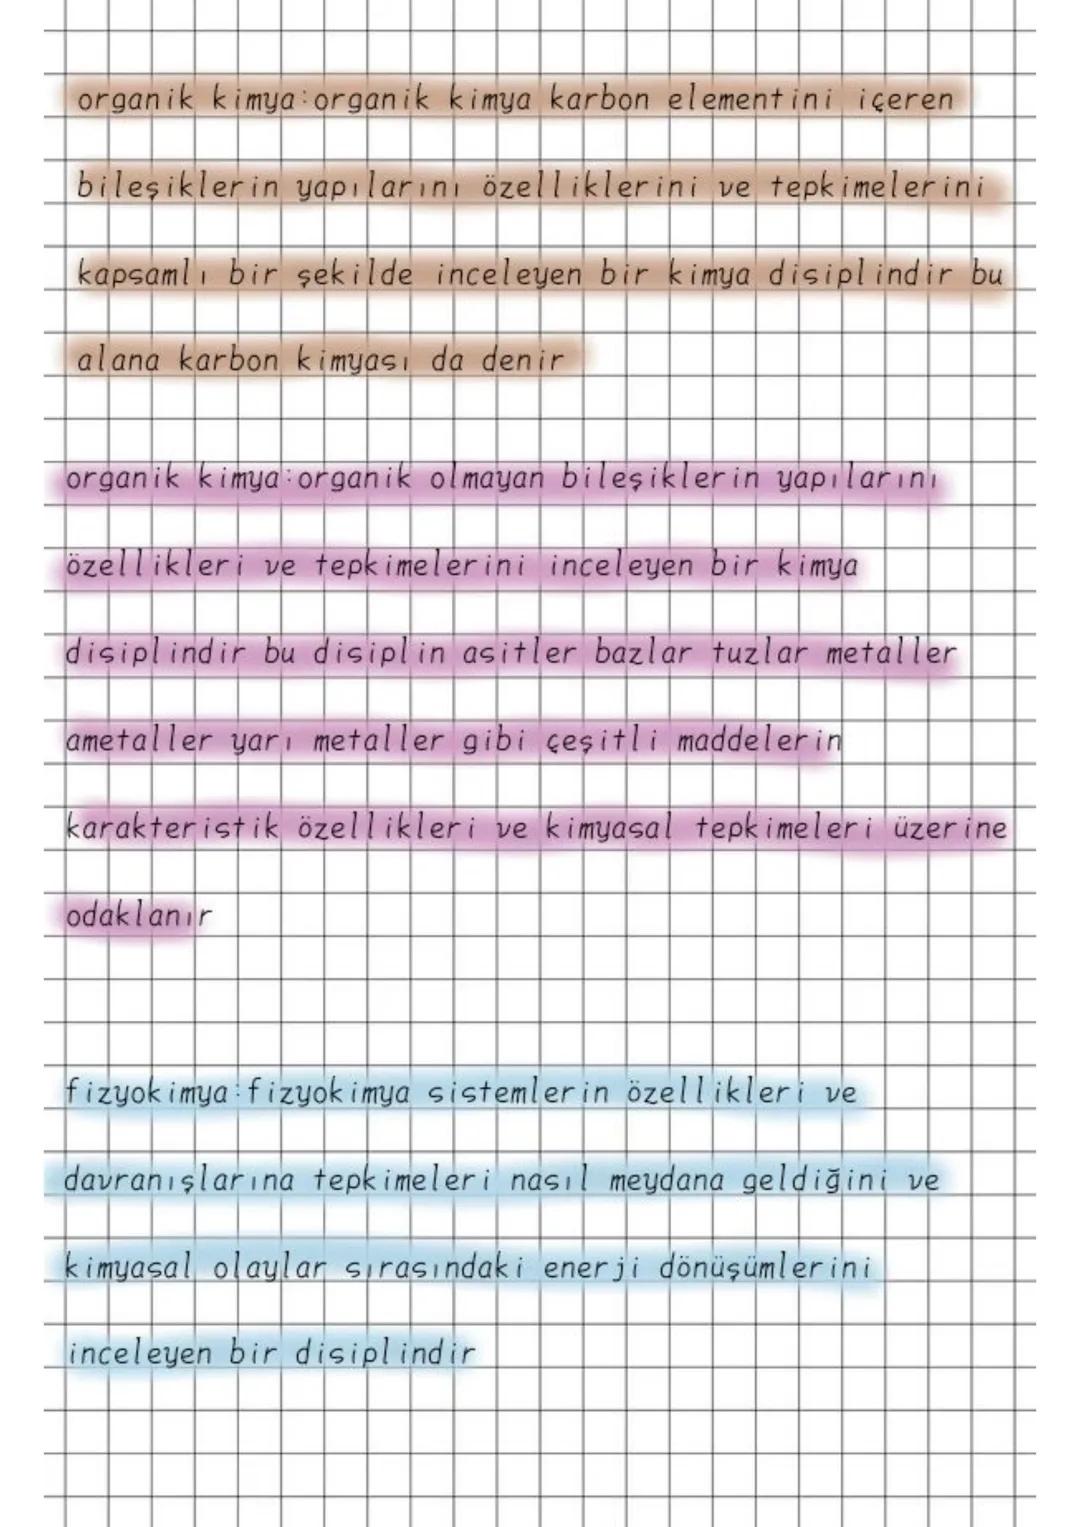 organik kimya:organik kimya karbon elementini içeren
bileşiklerin yapılarını özelliklerini ve tepkimelerini
kapsamlı bir şekilde inceleyen bir kimya disiplindir bu
alana karbon kimyası da denir
organik kimya:organik olmayan bileşiklerin yapılarını
özellikleri ve tepkimelerini inceleyen bir kimya
disiplindir bu disiplin asitler bazlar tuzlar metaller
ametaller yarı metaller gibi çeşitli maddelerin
karakteristik özellikleri ve kimyasal tepkimeleri üzerine
odaklanır
fizyokimya:fizyokimya sistemlerin özellikleri ve
davranışlarına tepkimeleri nasıl meydana geldiğini ve
kimyasal olaylar sırasındaki enerji dönüşümlerini
inceleyen bir disiplindir